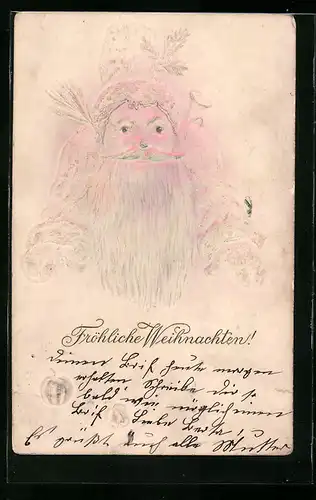 Fröhliche Weihnachten!
Deinen Brif heute morgen
erhalten Schreibe dir so
bald wie möglich einen
Brif Liebe Berta!
Es grüßt Euch alle Mutter